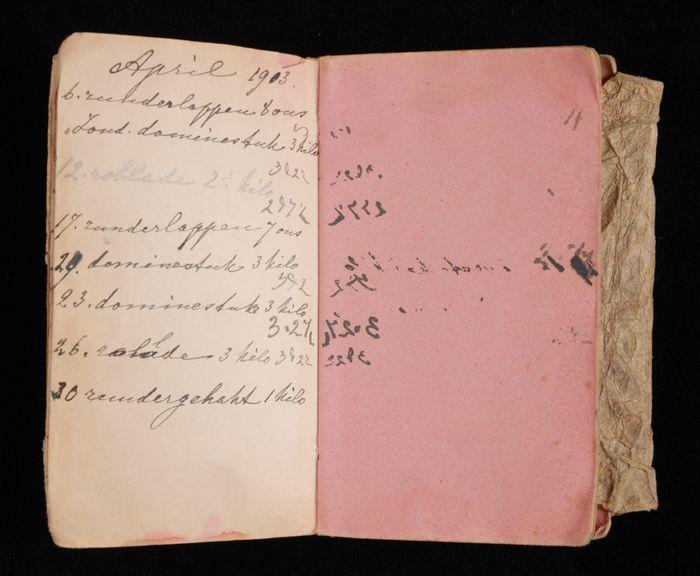 April 1903.
6. runderlappen 8 ons
Zond. dominestuk 3 kilo
3822
12. rollade 2½ kilo
17. runderlappen 7 ons
20. dominestuk 3 kilo
23. dominestuk 3 kilo
3.27½
26. rollade 3 kilo 3822
30 rundergehakt 1 kilo